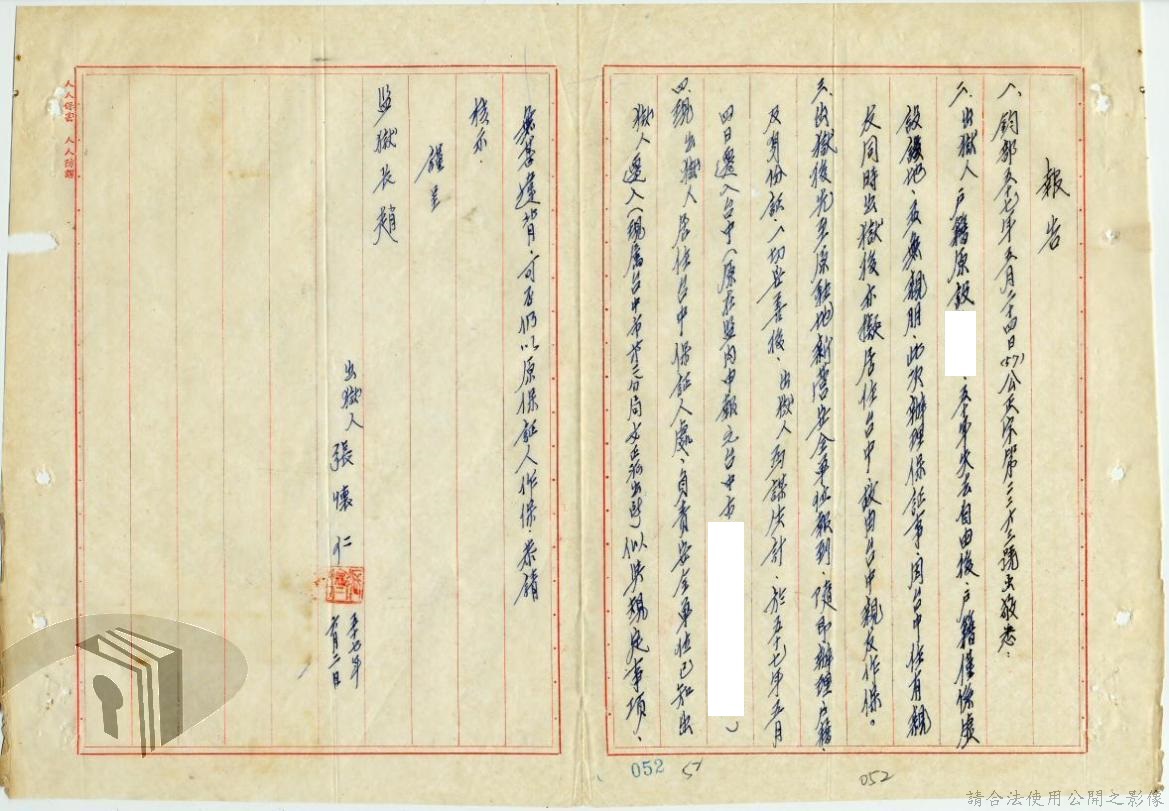 報告
一、鈞部五十七年五月二十四日(57)公正字第二三七三號敬悉：
二、出獄人戶籍原設　　　、五十年失去自由後、戶籍僅係虛
設該地、友無親朋、此次辦理保証事、因台中住有親
友同時出獄後亦擬居住台中、故由台中親友作保。
三、出獄後先至原執地新營安全單位報到、隨即辦理戶籍
及身份証、一切安善後、出獄人為謀生計、於五十七年五月
四日遷入台中(原在監內申報元台中市　　　)
四、現出獄人居住台中保証人處、負責安全單位已知出
獄人遷入(現屬台中市第二分局文正派出所)似與規定事項、
無甚違背、可否仍以原保証人作保、恭請
核示．
謹呈
監獄長趙
出獄人張懷仁
五十七年
六月二日
人人保密 人人防諜
052
57
052
請合法使用公開之影像